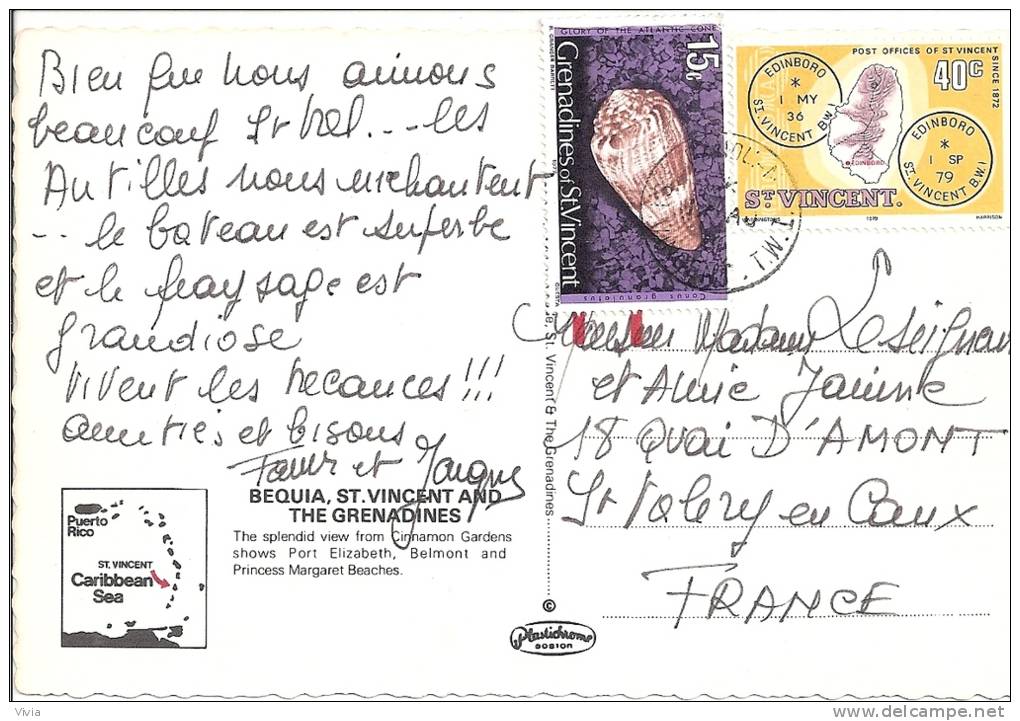 Bien que nous aimons
beaucoup St Val...les
Antilles nous enchantent
... le bateau est superbe
et le paysage est
grandiose
Vivent les vacances!!!
amitiés et bisous
et Jacques
BEQUIA, ST.VINCENT AND
THE GRENADINES
The splendid view from Cinnamon Gardens
shows Port Elizabeth, Belmont and
Princess Margaret Beaches.
Puerto
Rico
ST. VINCENT
Caribbean
Sea
GLORY OF THE ATLANTIC CONE
15c
Grenadines of St Vincent
Conus granulatus
POST OFFICES OF ST VINCENT
SINCE 1872
40c
EDINBORO
*
1 MY
36
ST. VINCENT B.W.I
EDINBORO
*
1 SP
79
ST. VINCENT B.W.I
EDINBORO
ST VINCENT.
1979
HARRISON
St. Vincent & The Grenadines
Monsieur Madame Leseigneur
et Amie Janine
18 QUAI D'AMONT
St Valery en Caux
FRANCE
©
Plastichrome
BOSTON
Vivia
www.delcampe.net